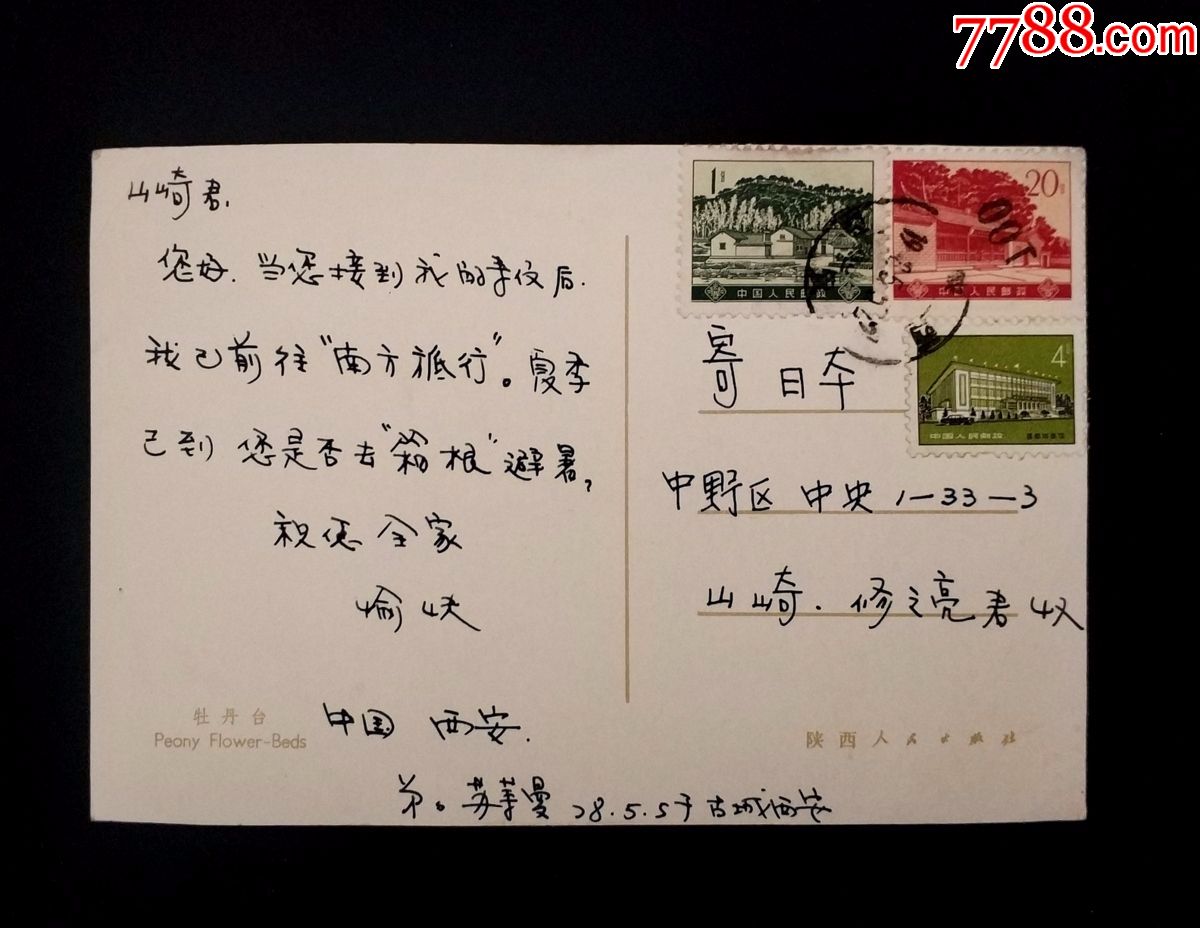 7788.com
山崎君.
您好.当您接到我的来仪后.
我已前往"南方旅行"。夏季
已到 您是否去"箱根"避暑,
祝您 全家
愉快
中国 西安.
弟。苏 曼 78.5.5于古城西安
牡丹台
Peony Flower-Beds
1分
中国人民邮政
20分
中国人民邮政
4
中国人民邮政
寄 日本
中野区 中央 1-33-3
山崎.修之亮君 收
陕西人民出版社